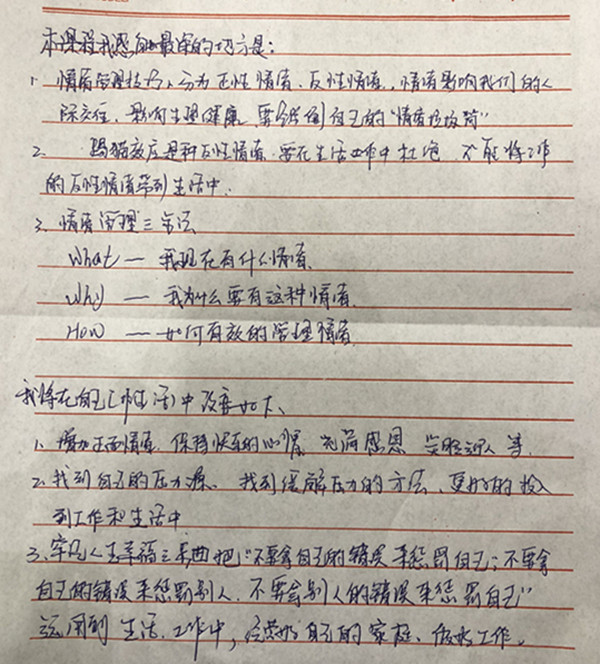 本课程我感触最深的地方是：
1. 情绪管理技巧，分为正性情绪、反性情绪，情绪影响我们的人
际交往，影响生理健康，要能找到自己的“情绪垃圾筒”
2. 踢猫效应是种反性情绪，要在生活工作中杜绝，不能将工作
的反性情绪带到生活中.
3. 情绪管理三方法
What — 我现在有什么情绪.
Why — 我为什么要有这种情绪.
How — 如何有效的管理情绪.
我将在自己工作(生活)中改变如下、
1. 增加正面情绪，保持快乐的心情，充满感恩 等.
2. 找到自己的压力源、找到缓解压力的方法、更好的投入
到工作和生活中
3. 牢记人生幸福三步曲把“不要拿自己的错误来惩罚自己；不要拿
自己的错误来惩罚别人，不要拿别人的错误来惩罚自己”
运用到生活、工作中，经营好自己的家庭、做好工作。